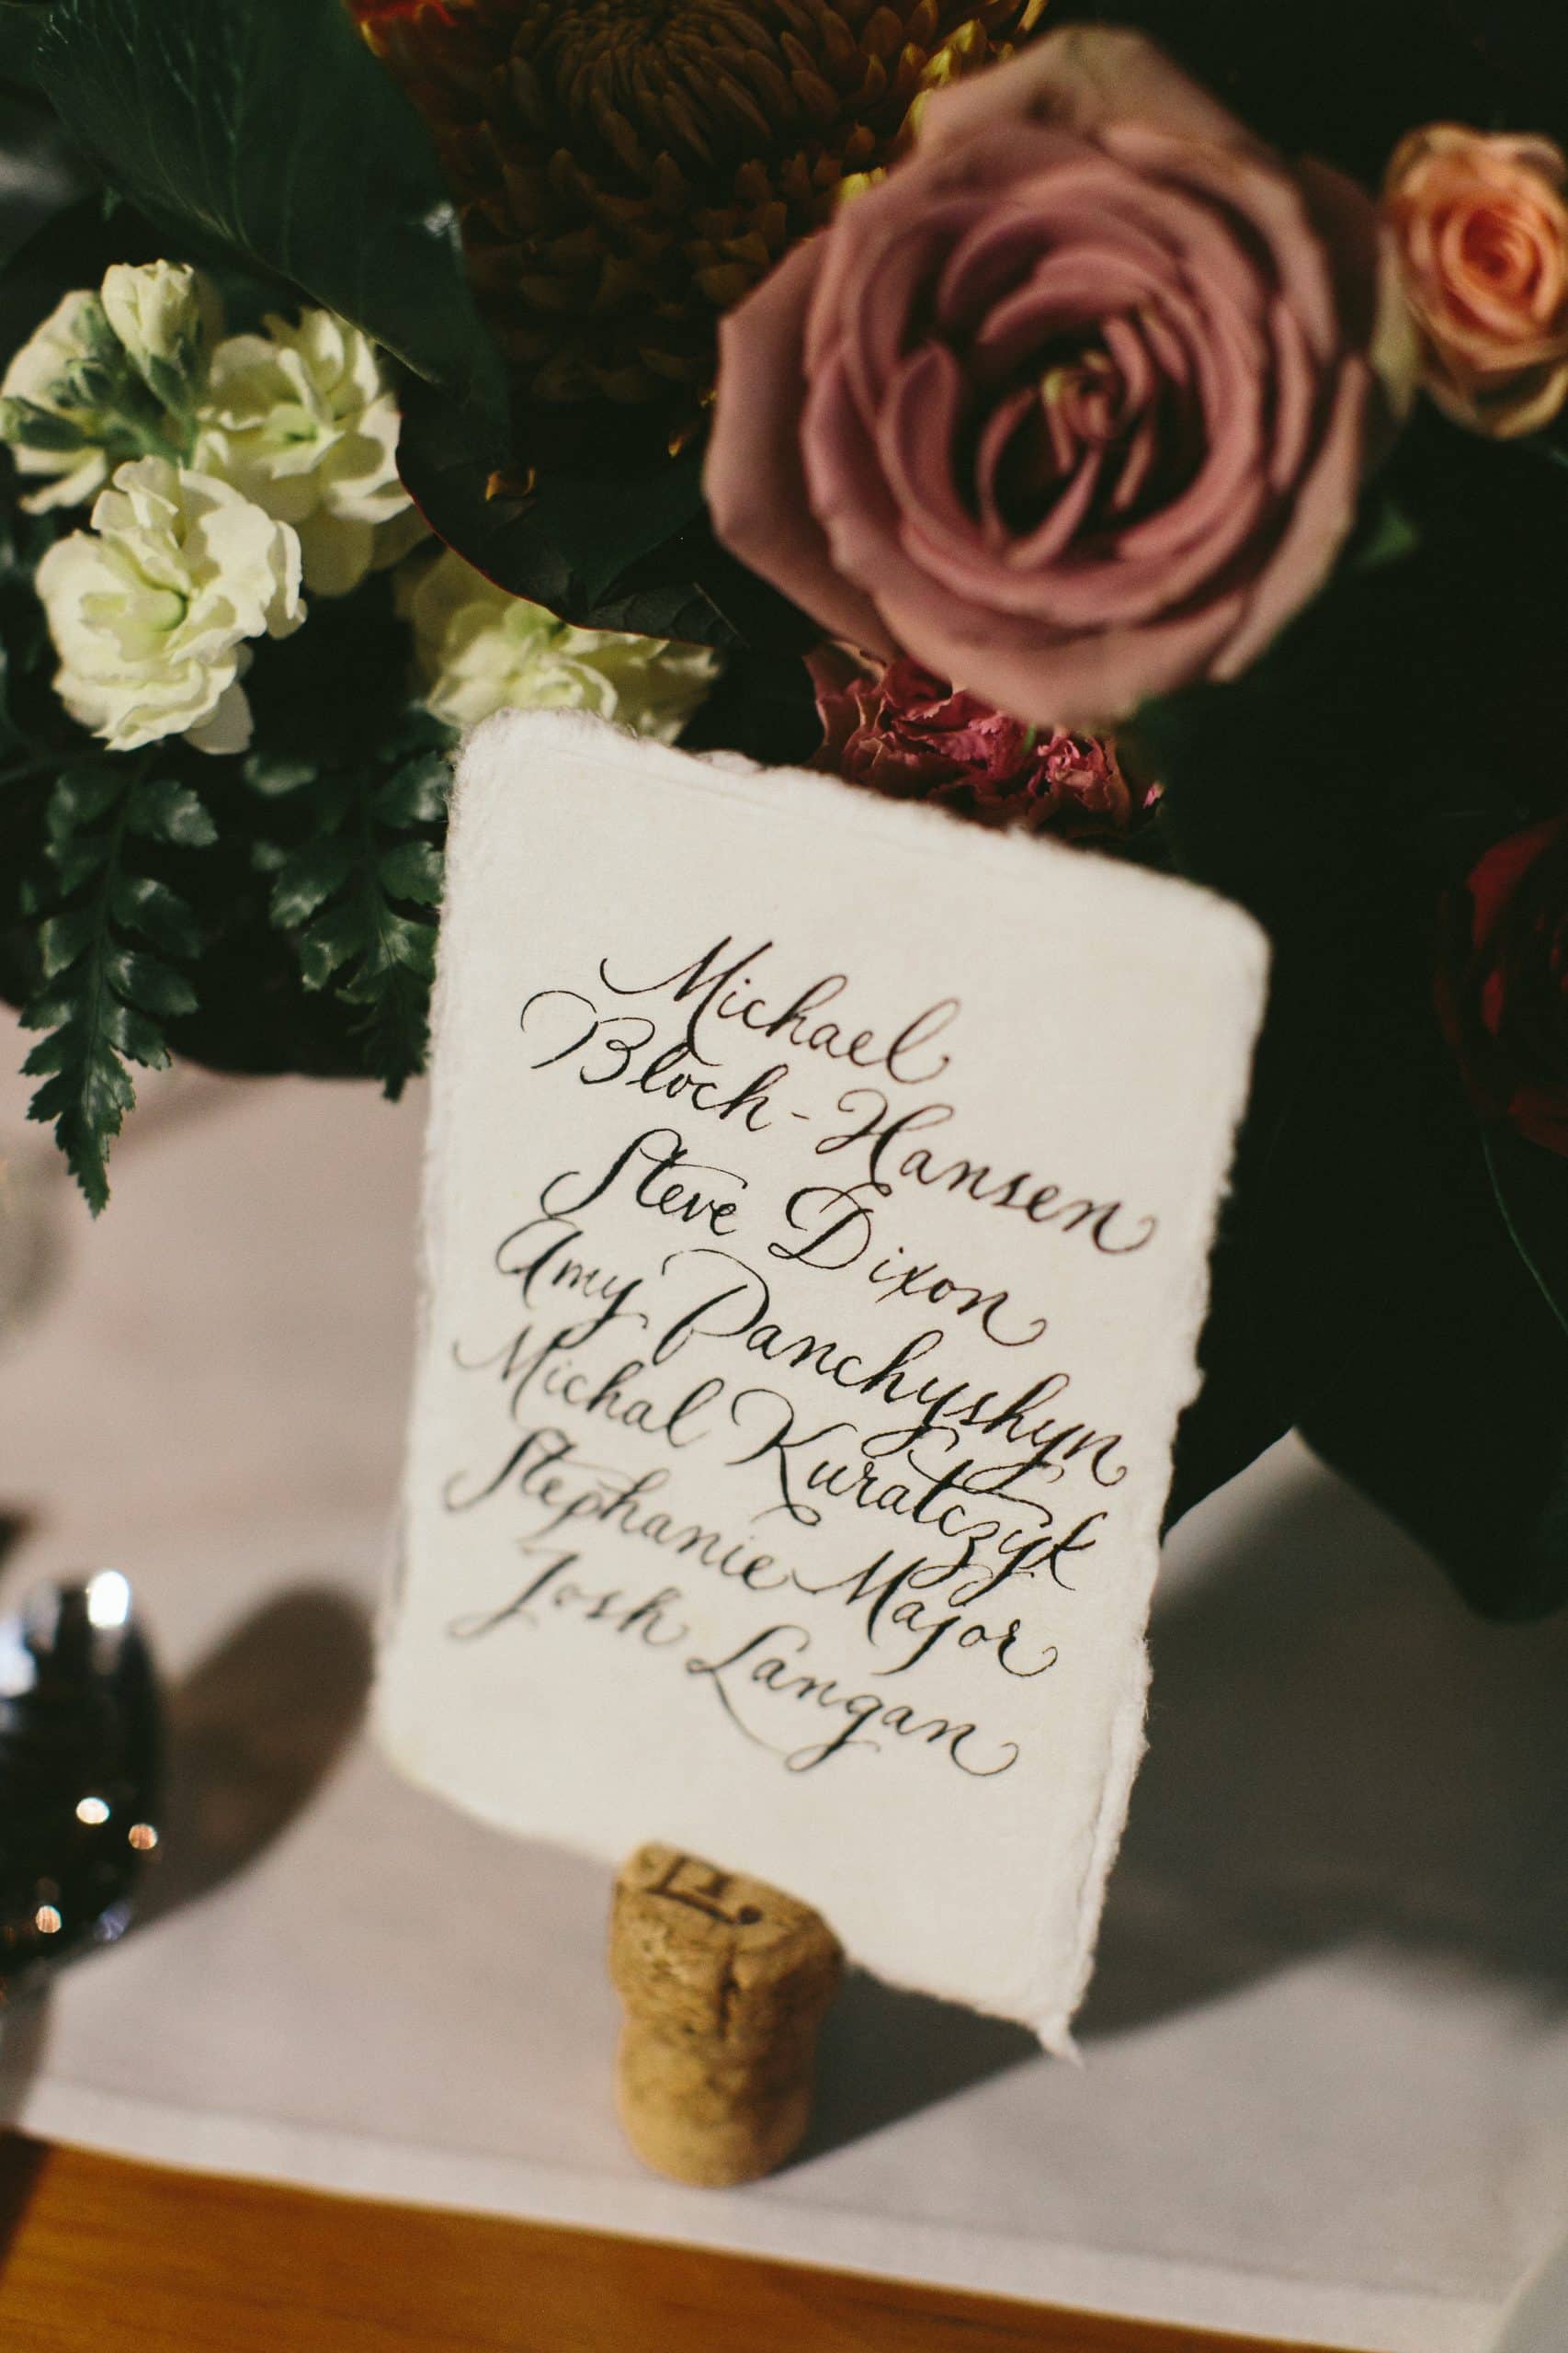 Michael
Bloch-Hansen
Steve Dixon
Amy Panchyshyn
Michal Kuratczyk
Stephanie Major
Josh Langan